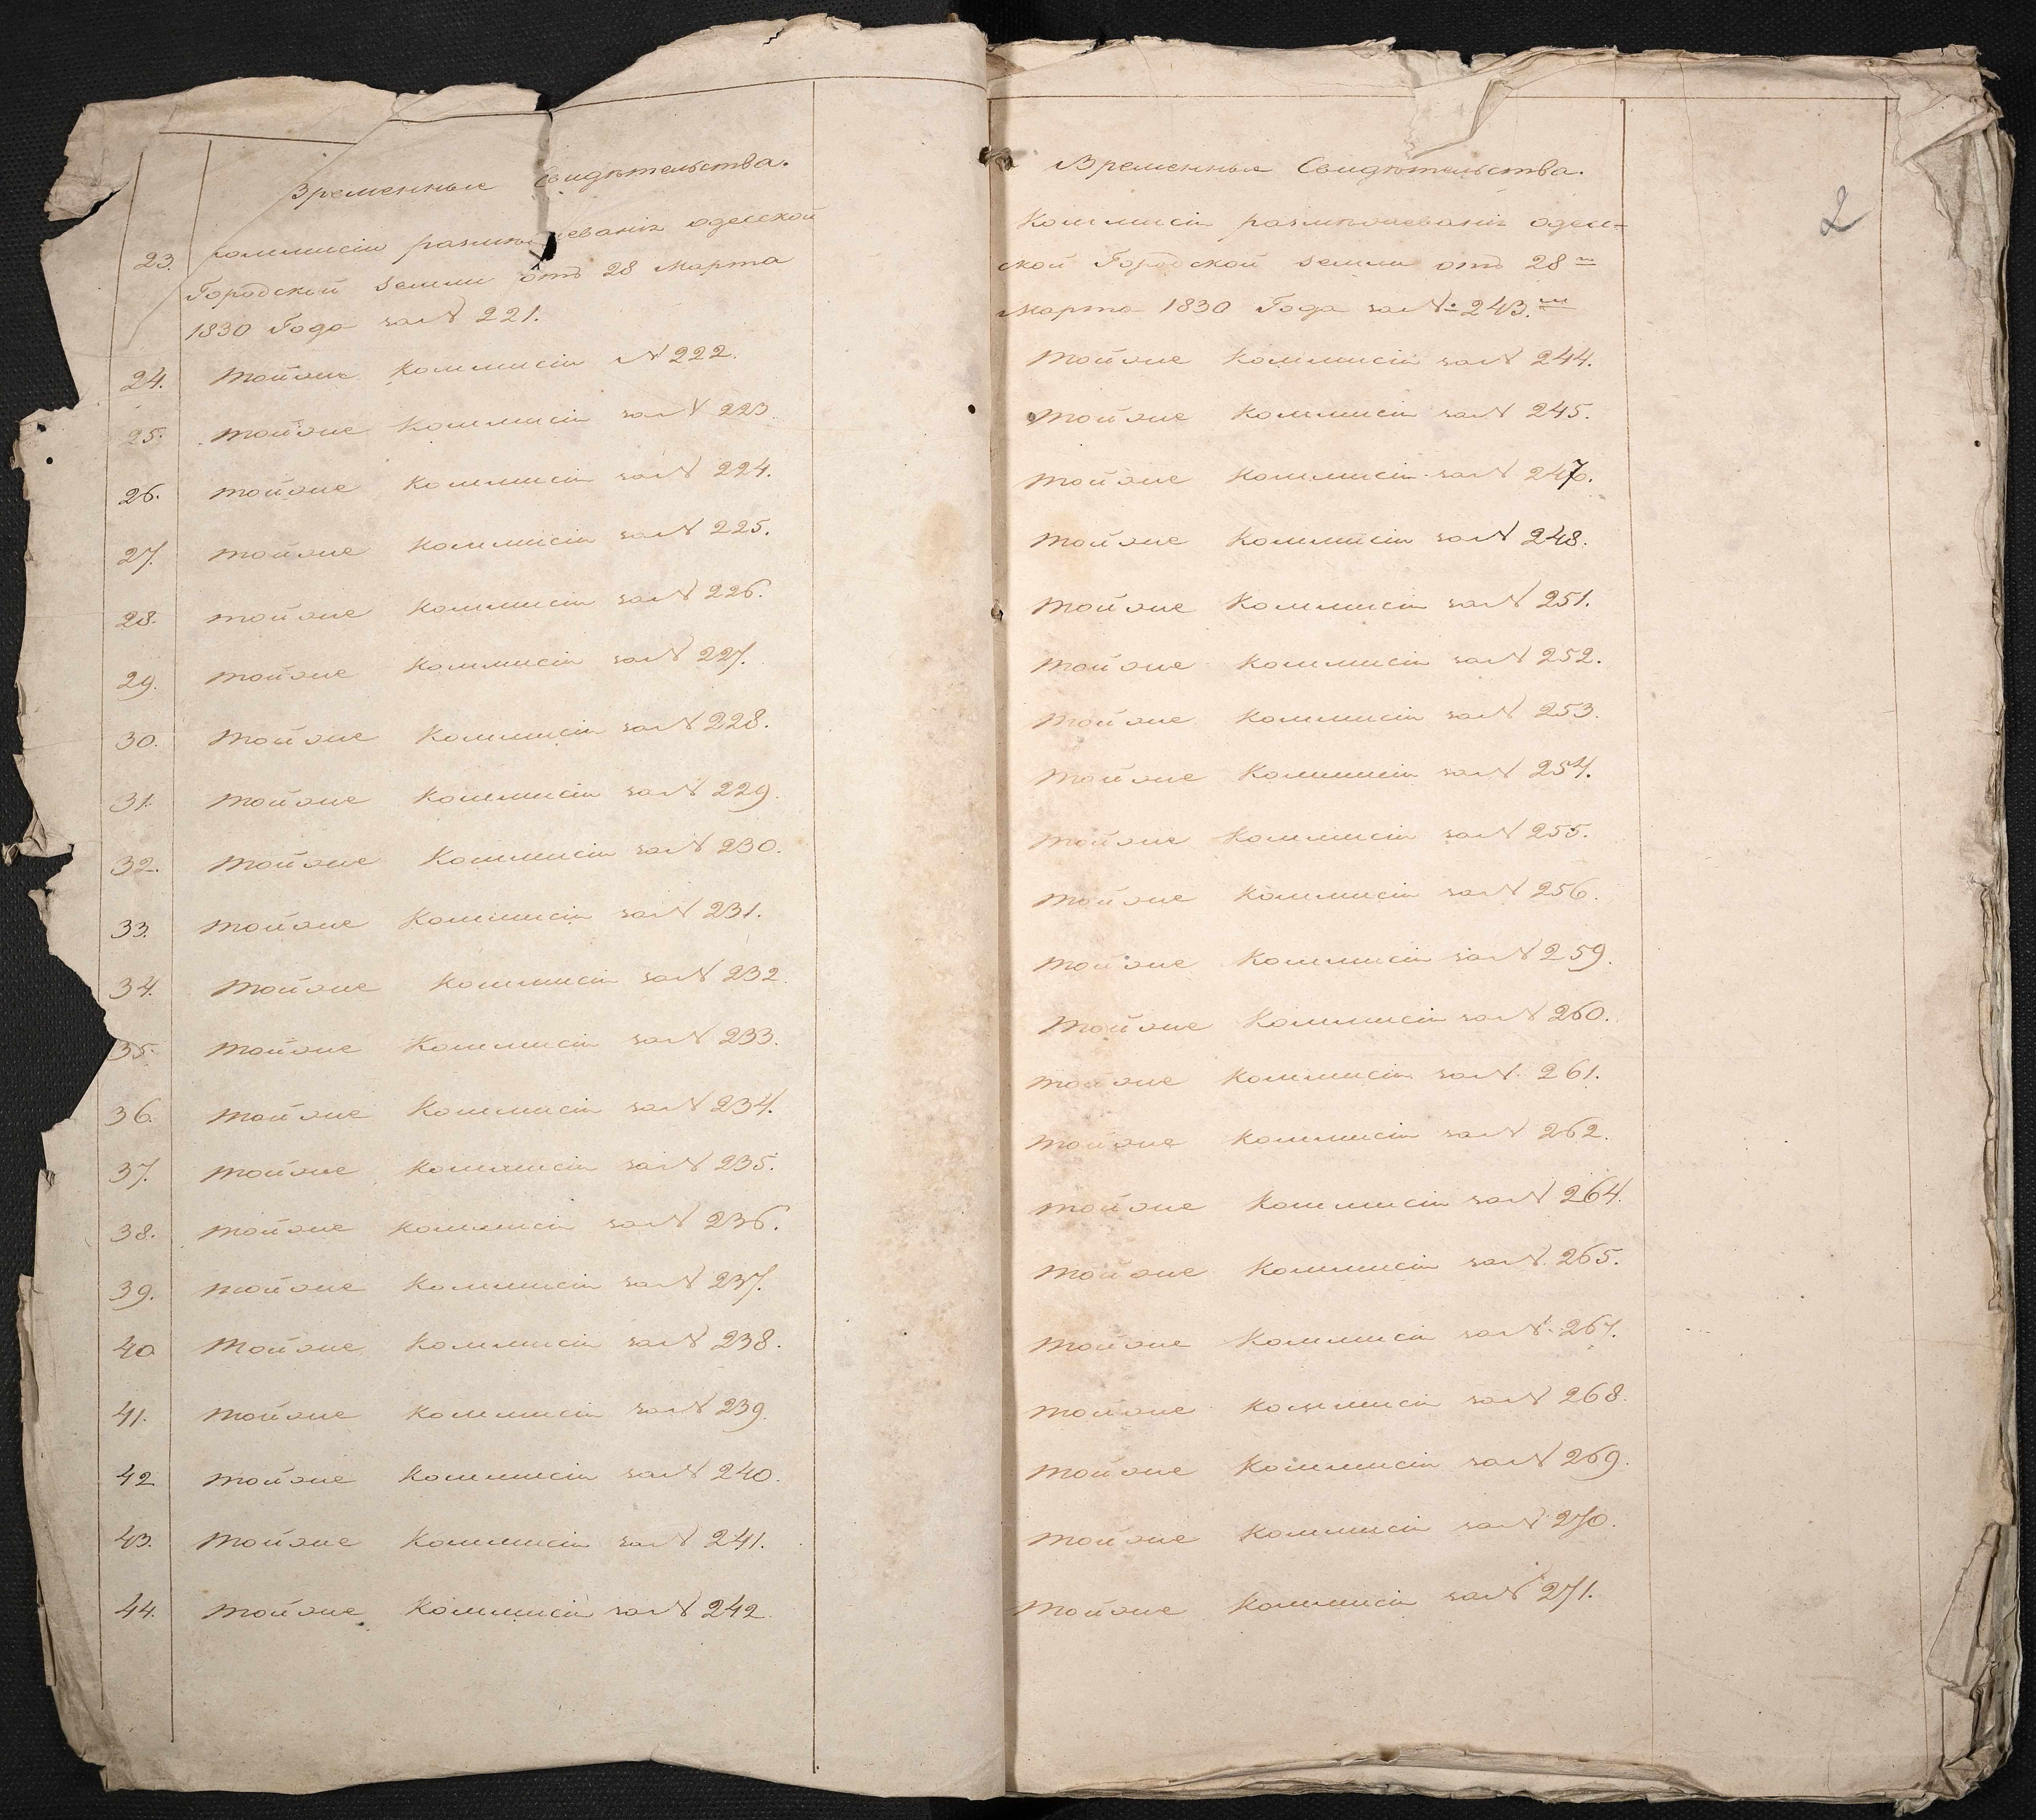 Временныя Свидѣтельства.
23. Коммисіи размежеванія одесской
Городской земли отъ 28 Марта
1830 Года за N 221.
24. Тойже Коммисіи N 222.
25. Тойже Коммисіи за N 223.
26. Тойже Коммисіи за N 224.
27. Тойже Коммисіи за N 225.
28. Тойже Коммисіи за N 226.
29. Тойже Коммисіи за N 227.
30. Тойже Коммисіи за N 228.
31. Тойже Коммисіи за N 229.
32. Тойже Коммисіи за N 230.
33. Тойже Коммисіи за N 231.
34. Тойже Коммисіи за N 232.
35. Тойже Коммисіи за N 233.
36. Тойже Коммисіи за N 234.
37. Тойже Коммисіи за N 235.
38. Тойже Коммисіи за N 236.
39. Тойже Коммисіи за N 237.
40 Тойже Коммисіи за N 238.
41. Тойже Коммисіи за N 239.
42 Тойже Коммисіи за N 240.
43. Тойже Коммисіи за N 241.
44. Тойже Коммисіи за N 242.
2
Временныя Свидѣтельства.
Коммисіи размежеванія одес-
ской Городской земли отъ 28го
Марта 1830 Года за № 243.
Тойже Коммисіи за N 244.
Тойже Коммисіи за N 245.
Тойже Коммисіи за N 247.
Тойже Коммисіи за N 248.
Тойже Коммисіи за N 251.
Тойже Коммисіи за N 252.
Тойже Коммисіи за N 253.
Тойже Коммисіи за N 254.
Тойже Коммисіи за N 255.
Тойже Коммисіи за N 256.
Тойже Коммисіи за N 259.
Тойже Коммисіи за N 260.
Тойже Коммисіи за N 261.
Тойже Коммисіи за N 262.
Тойже Коммисіи за N 264.
Тойже Коммисіи за N 265.
Тойже Коммисіи за N 267.
Тойже Коммисіи за N 268.
Тойже Коммисіи за N 269.
Тойже Коммисіи за N 270.
Тойже Коммисіи за N 271.